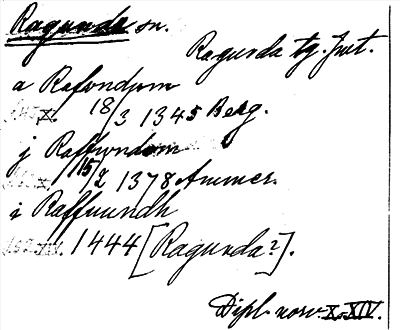 Ragunda sn.
Ragunda tg. Jmt.
a Rafondom
X. 18/3 1345 Berg.
j Raffwndom
X. 15/2 1378 Ammer.
i Raffuundh
XIV. 1444 [Ragunda?].
Dipl. norv. X. XIV.